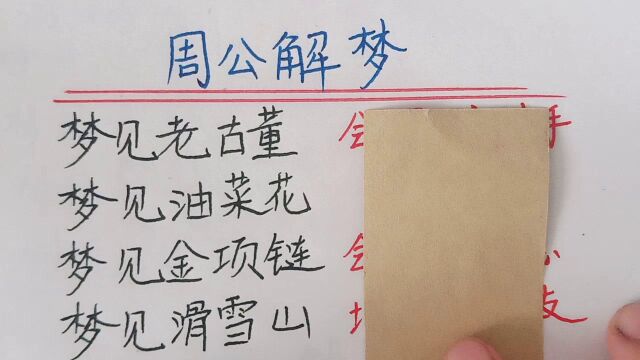 周公解梦
梦见老古董 会 手
梦见油菜花
梦见金项链 会
梦见滑雪山